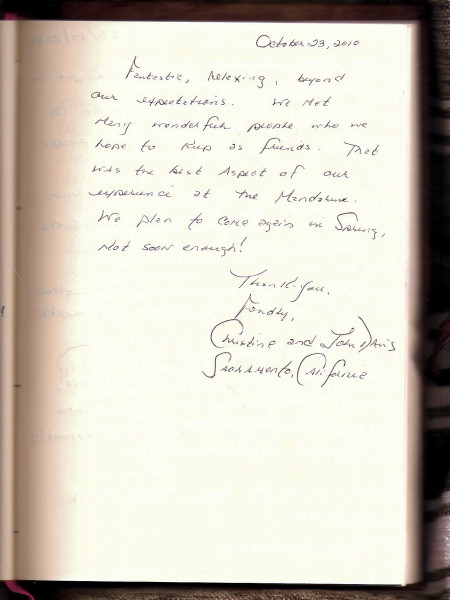 October 23, 2010
Fantastic, relaxing, beyond
our expectations. We met
many wonderful people who we
hope to keep as friends. That
was the best aspect of our
experience at the
We plan to come again in Spring,
not soon enough!
Thank-You.
Fondly,
Christine and John Davis
Sacramento, California